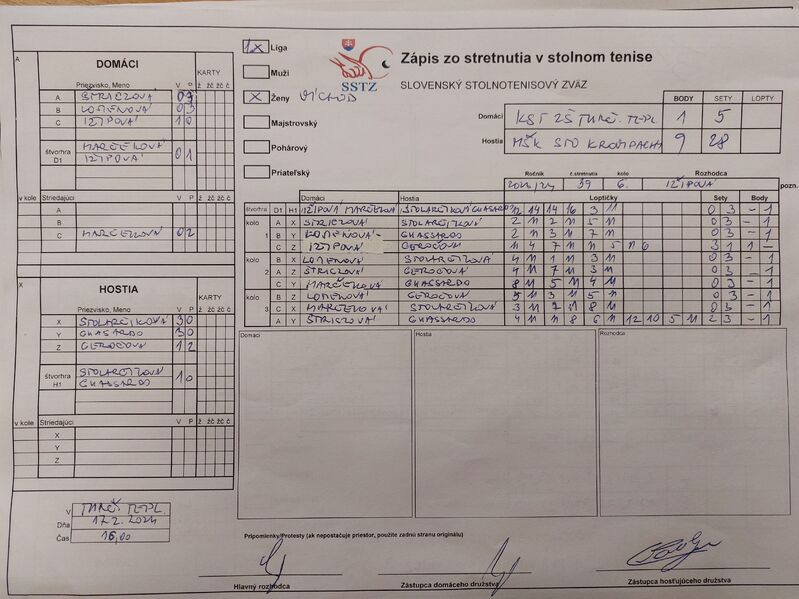 A
DOMÁCI
Priezvisko, Meno V P
KARTY
ž žč žč č
A STRIEZOVÁ 0 3
B LOMENOVÁ 0 3
C IŽIPOVÁ 1 0
štvorhra D1
MARČEKOVÁ
IŽIPOVÁ 0 1
v kole Striedajúci
A
B
C MARČEKOVÁ 0 2
X
HOSTIA
Priezvisko, Meno V P
KARTY
ž žč žč č
X STOLARČIKOVÁ 3 0
Y GHASSARDO 3 0
Z GEROČOVÁ 1 2
štvorhra H1
STOLARČIKOVÁ
GHASSARDO 1 0
v kole Striedajúci V P ž žč žč č
X
Y
Z
V TURČ. TEPL.
Dňa 17.2.2024
Čas 16,00
1 X Liga
Muži
X Ženy VÝCHOD
Majstrovský
Pohárový
Priateľský
SSTZ
Zápis zo stretnutia v stolnom tenise
SLOVENSKÝ STOLNOTENISOVÝ ZVÄZ
BODY SETY LOPTY
Domáci KST ZŠ TURČ. TEPL 1 5
Hostia MŠK STO KROMPACHY 9 28
Ročník č.stretnutia kolo Rozhodca
39 6. IŽIPOVÁ pozn.
Domáci Hostia Loptičky Sety Body
štvorhra D1 H1 IŽIPOVÁ MARČEKOVÁ STOLARČIKOVÁ GHASSARDO 12 14 14 16 3 11 0 3 - 1
kolo A X STRIEZOVÁ STOLARČIKOVÁ 2 11 2 11 5 11 0 3 - 1
1 B Y LOMENOVÁ GHASSARDO 2 11 3 11 7 11 0 3 - 1
C Z IŽIPOVÁ GEROČOVÁ 11 4 7 11 11 5 11 6 3 1 1 -
kolo B X LOMENOVÁ STOLARČIKOVÁ 4 11 1 11 3 11 0 3 - 1
2 A Z STRIEZOVÁ GEROČOVÁ 4 11 7 11 3 11 0 3 - 1
C Y MARČEKOVÁ GHASSARDO 8 11 5 11 4 11 0 3 - 1
kolo B Z LOMENOVÁ GEROČOVÁ 5 11 3 11 5 11 0 3 - 1
3 C X MARČEKOVÁ STOLARČIKOVÁ 3 11 7 11 8 11 0 3 - 1
A Y STRIEZOVÁ GHASSARDO 4 11 11 8 6 11 12 10 5 11 2 3 - 1
Domáci Hostia Rozhodca
Pripomienky/Protesty (ak nepostačuje priestor, použite zadnú stranu originálu)
Hlavný rozhodca Zástupca domáceho družstva Zástupca hosťujúceho družstva